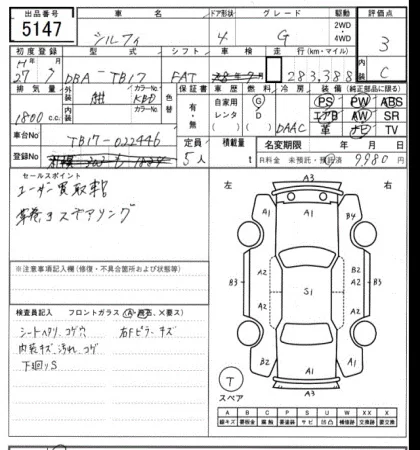 出品番号 車名 ドア形状 グレード 駆動 評価点
5147 シルフィ 4 G 2WD 4WD 3
初度登録 型式 シフト 車検 走行(km・マイル) 内装
H27/ DBA-TB17 FAT 283,388 C
排気量 外装 紺 カラーNo. 色替 カラーNo. 保証書 車歴 燃料 冷房 装備(純正部品に限る)
1800cc 内装 有・無 自家用 レンタ G D DAAC PS PW ABS
エアB AW SR
革 ナビ TV
車台No TB17-022446 定員 積載量 名変期限 年 月 日
登録No 5人 t R料金 未預託・預託済 9,980円
セールスポイント
ユーザー買取車
革巻きステアリング
左 右
A3
A1 A1 B4
A2 A2
B3 S1 B3
A2 A2 A2
B2 A1 B2
A3
※注意事項記入欄(修復・不具合箇所および状態等)
検査員記入 フロントガラス(A・飛石、×要ス)
シートヘタリ、コゲ穴 右Fピラーキズ
内装キズ、汚れ、コゲ
下回りS
T
スペア
A B C P S U W X XX
線キズ 要板金 腐蝕 要塗装 サビ 凹凸 補修跡 要交換